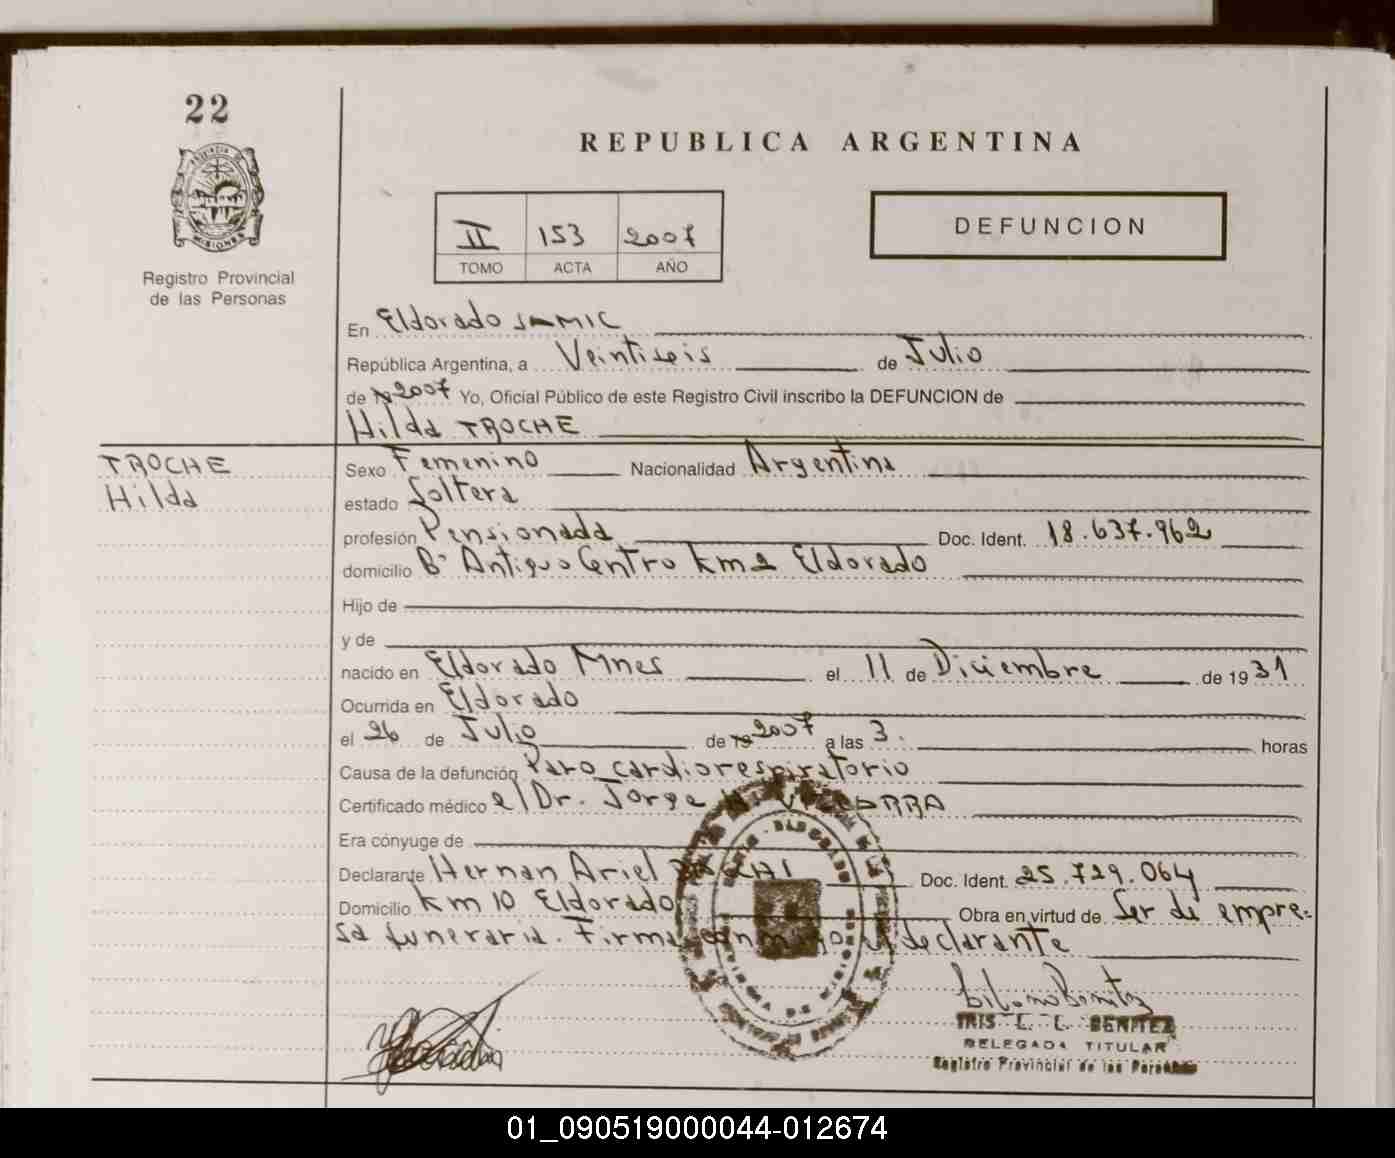 22
REPUBLICA ARGENTINA
PROVINCIA DE
MISIONES
Registro Provincial
de las Personas
II 153 2007
TOMO ACTA AÑO
DEFUNCION
En Eldorado SAMIC
República Argentina, a Veintiseis de Julio
de 19 2007 Yo, Oficial Público de este Registro Civil inscribo la DEFUNCION de
Hilda TROCHE
TROCHE
Hilda
Sexo Femenino Nacionalidad Argentina
estado Soltera
profesión Pensionada Doc. Ident. 18.637.962
domicilio Bº Antiguo Centro km 2 Eldorado
Hijo de
y de
nacido en Eldorado Mnes el 11 de Diciembre de 1931
Ocurrida en Eldorado
el 26 de Julio de 19 2007 a las 3. horas
Causa de la defunción Paro cardiorespiratorio
Certificado médico el Dr. Jorge
Era cónyuge de
Declarante Hernan Ariel Doc. Ident. 25.729.064
Domicilio km 10 Eldorado Obra en virtud de Ser de empre-
sa funeraria. Firma el declarante
IRIS L. L. BENITEZ
DELEGADA TITULAR
Registro Provincial de las Personas
01_090519000044-012674